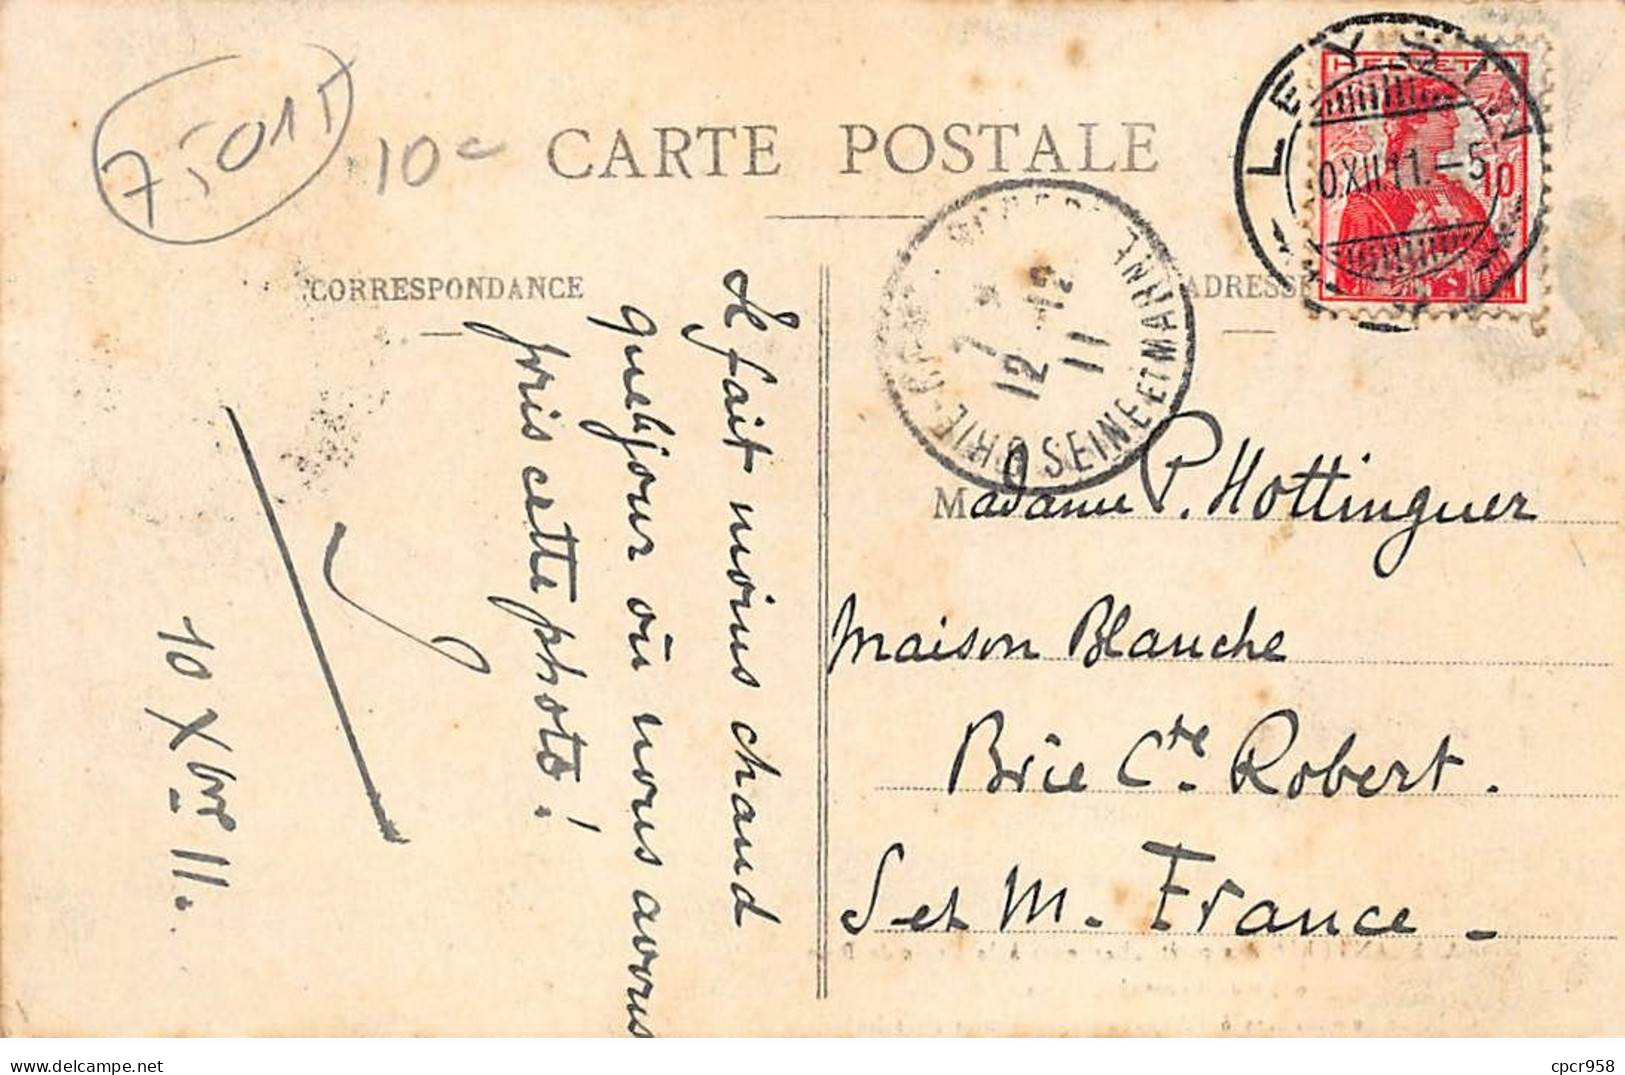 7,501T
10c
CARTE POSTALE
CORRESPONDANCE
ADRESSE
HELVETIA
10
LEYSIN
0.XII.11.-5
BRIE-
SEINE ET MARNE
12 -12
11
Il fait moins chaud
quelqjour où nous avons
pris cette photo !
10 Xbre 11.
Madame P. Hottinguer
Maison Blanche
Brie Cte Robert.
S et M. France -
cpcr958